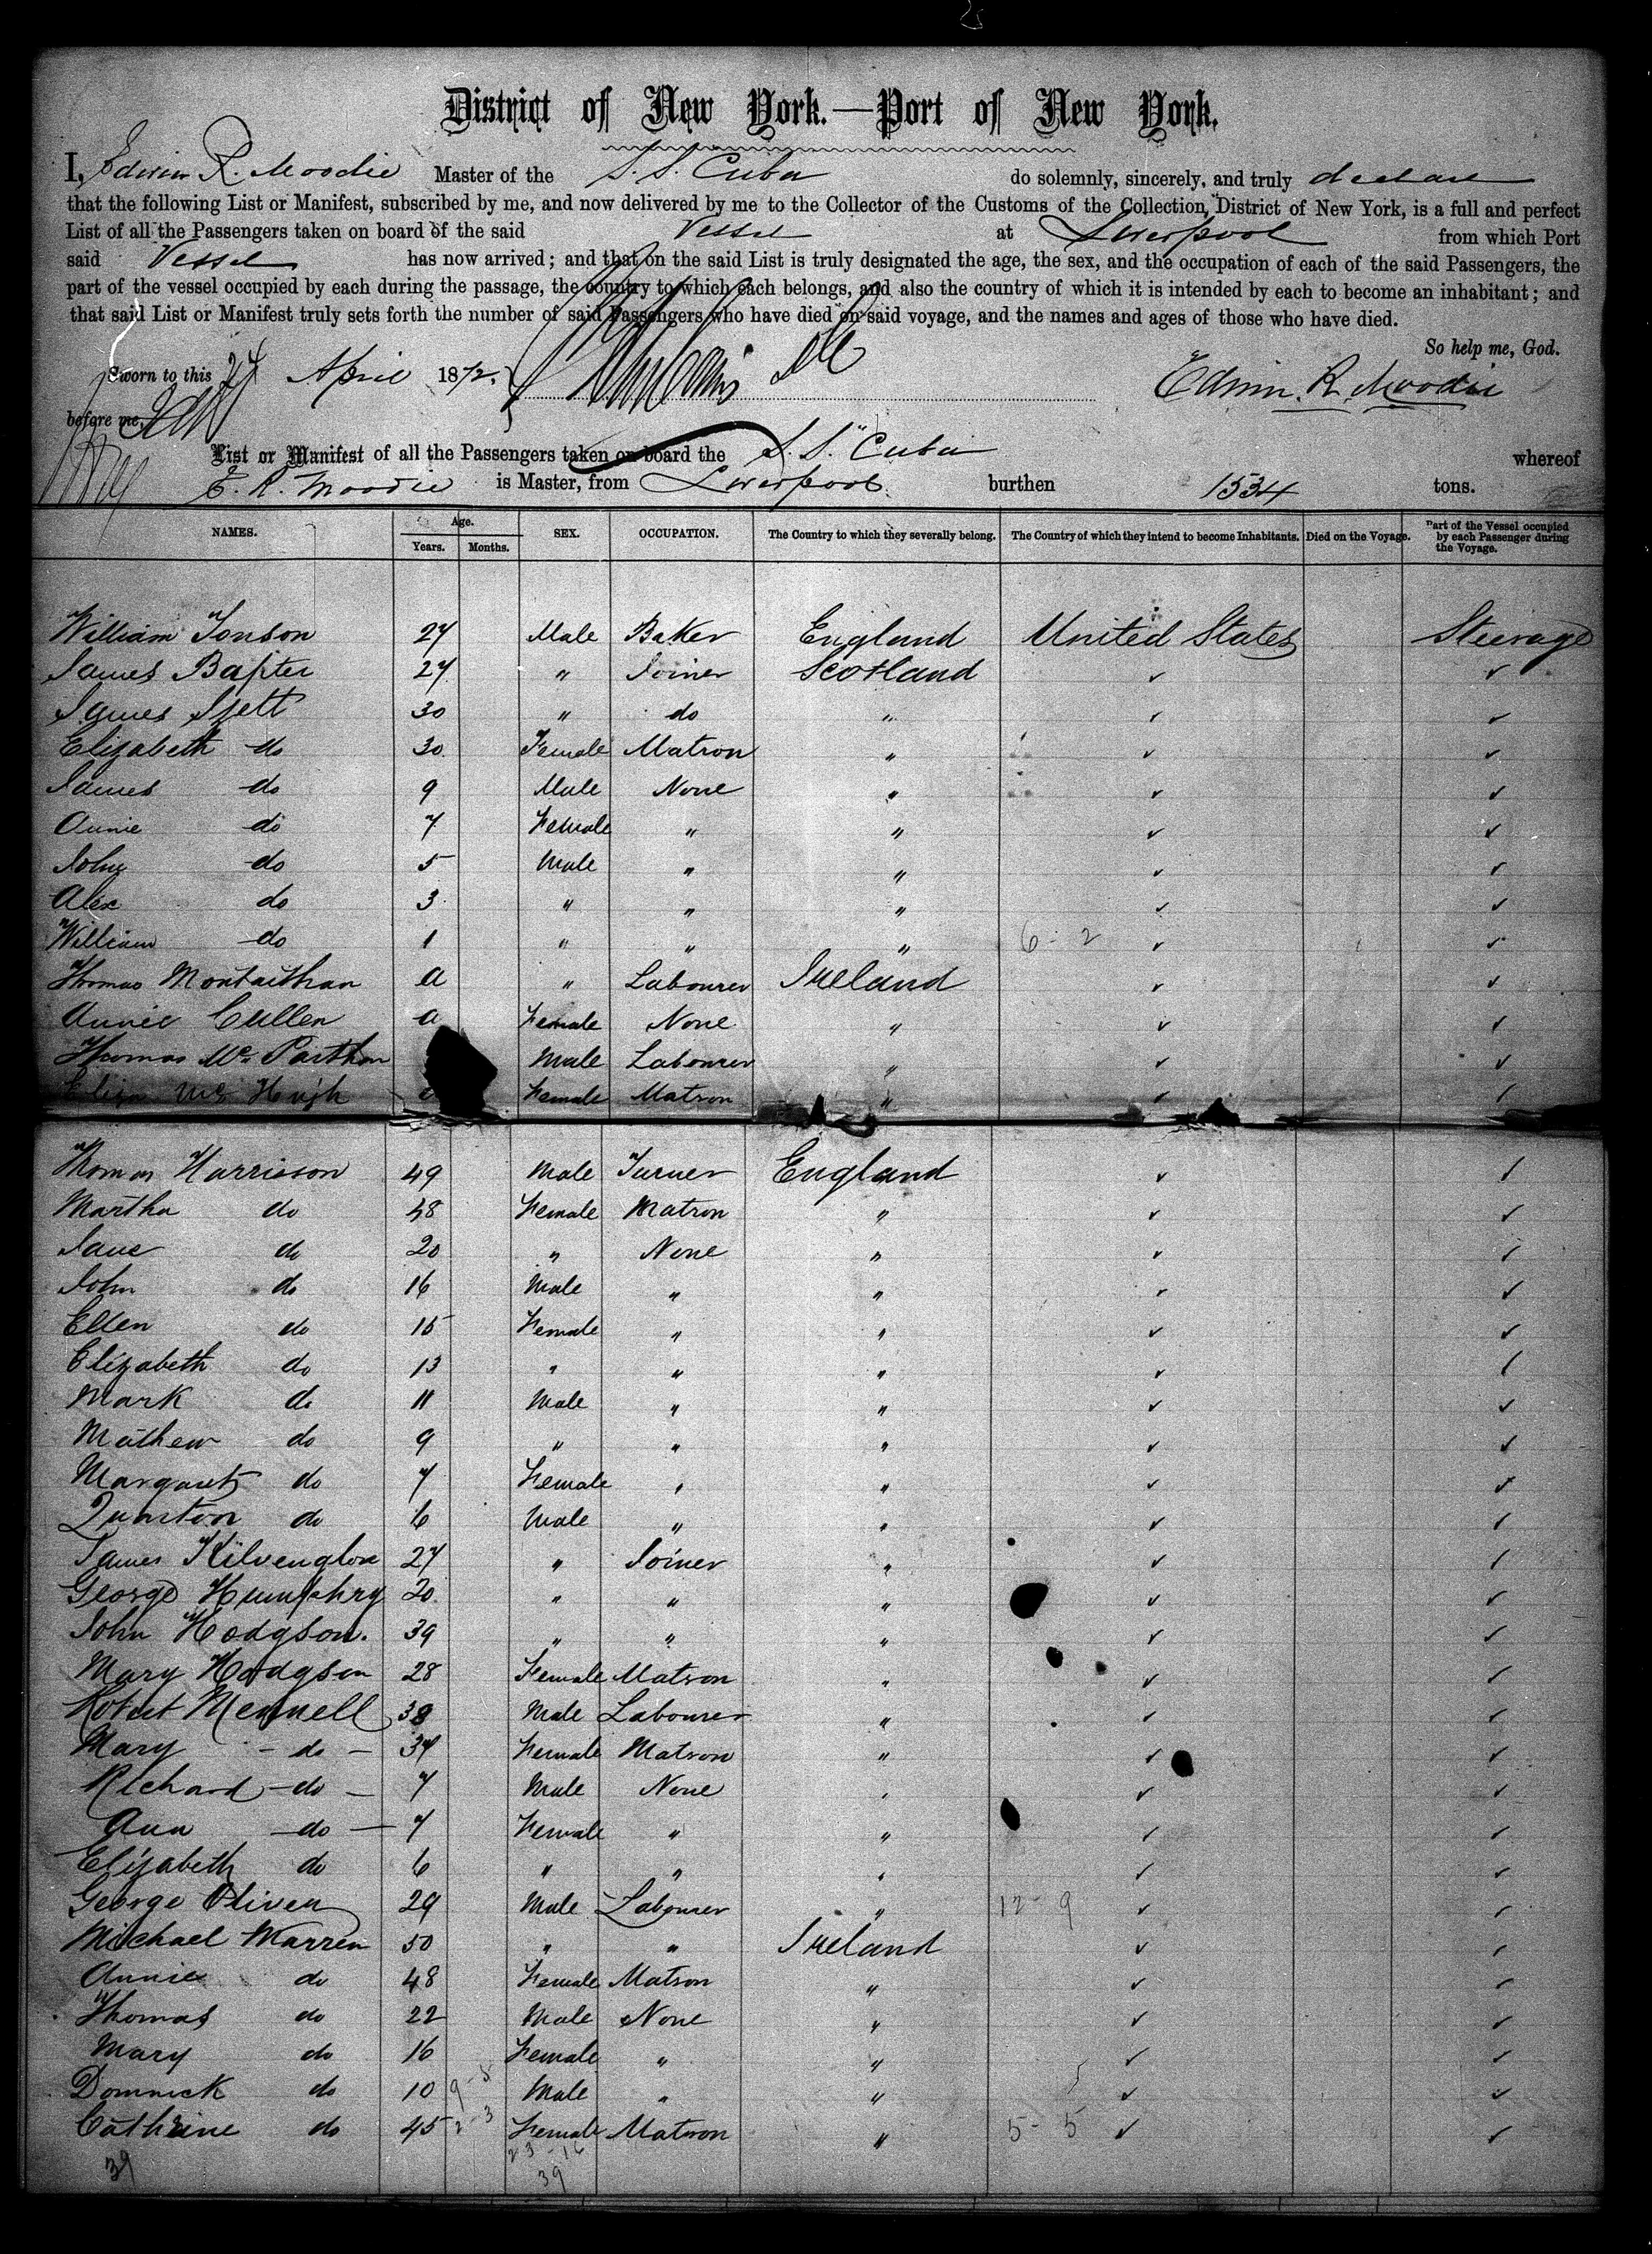 District of New York.—Port of New York.
I, Edwin R. Moodie Master of the S.S. Cuba do solemnly, sincerely, and truly declare
that the following List or Manifest, subscribed by me, and now delivered by me to the Collector of the Customs of the Collection District of New York, is a full and perfect
List of all the Passengers taken on board of the said Vessel at Liverpool from which Port
said Vessel has now arrived; and that on the said List is truly designated the age, the sex, and the occupation of each of the said Passengers, the
part of the vessel occupied by each during the passage, the country to which each belongs, and also the country of which it is intended by each to become an inhabitant; and
that said List or Manifest truly sets forth the number of said Passengers who have died on said voyage, and the names and ages of those who have died.
So help me, God.
Sworn to this 24 April 1872. Edwin R. Moodie
before me,
List or Manifest of all the Passengers taken on board the S.S. "Cuba whereof
E. R. Moodie is Master, from Liverpool burthen 1534 tons.
NAMES. Age. Years. Months. SEX. OCCUPATION. The Country to which they severally belong. The Country of which they intend to become Inhabitants. Died on the Voyage. Part of the Vessel occupied by each Passenger during the Voyage.
William Jonson 27 Male Baker England United States Steerage
James Baxter 27 " Joiner Scotland ✓ ✓
James 30 " do " ✓ ✓
Elizabeth do 30 Female Matron " ✓ ✓
James do 9 Male None " ✓ ✓
Annie do 7 Female " " ✓ ✓
John do 5 Male " " ✓ ✓
Alex do 3 " " " ✓ ✓
William do 1 " " " 6-2 ✓ ✓
Thomas a " Labourer Ireland ✓ ✓
Annie Cullen a Female None " ✓ ✓
Thomas Mc Parthan Male Labourer " ✓ ✓
Eliza Mc Hugh Female Matron " ✓ ✓
Thomas Harrisson 49 Male Turner England ✓ ✓
Martha do 48 Female Matron " ✓ ✓
Jane do 20 " None " ✓ ✓
John do 16 Male " " ✓ ✓
Ellen do 15 Female " " ✓ ✓
Elizabeth do 13 " " " ✓ ✓
Mark do 11 Male " " ✓ ✓
Mathew do 9 " " " ✓ ✓
Margaret do 7 Female " " ✓ ✓
do 6 Male " " ✓ ✓
James Kilvengton 27 " Joiner " ✓ ✓
George Humphry 20 " " " ✓ ✓
John Hodgson. 39 " " " ✓ ✓
Mary Hodgson 28 Female Matron " ✓ ✓
Robert Mennell 38 Male Labourer " ✓ ✓
Mary - do - 34 Female Matron " ✓ ✓
Richard - do - 7 Male None " ✓ ✓
Ann - do - 7 Female " " ✓ ✓
Elizabeth do 6 " " " ✓ ✓
George Oliver 29 Male Labourer " 12-9 ✓ ✓
Michael Warren 50 " " Ireland ✓ ✓
Annie do 48 Female Matron " ✓ ✓
Thomas do 22 Male None " ✓ ✓
Mary do 16 Female " " ✓ ✓
Domnick do 10 9-5 Male " " ✓ ✓
Cathrine do 45 2-3 Female Matron " 5-5 ✓ ✓
39 23-16
39